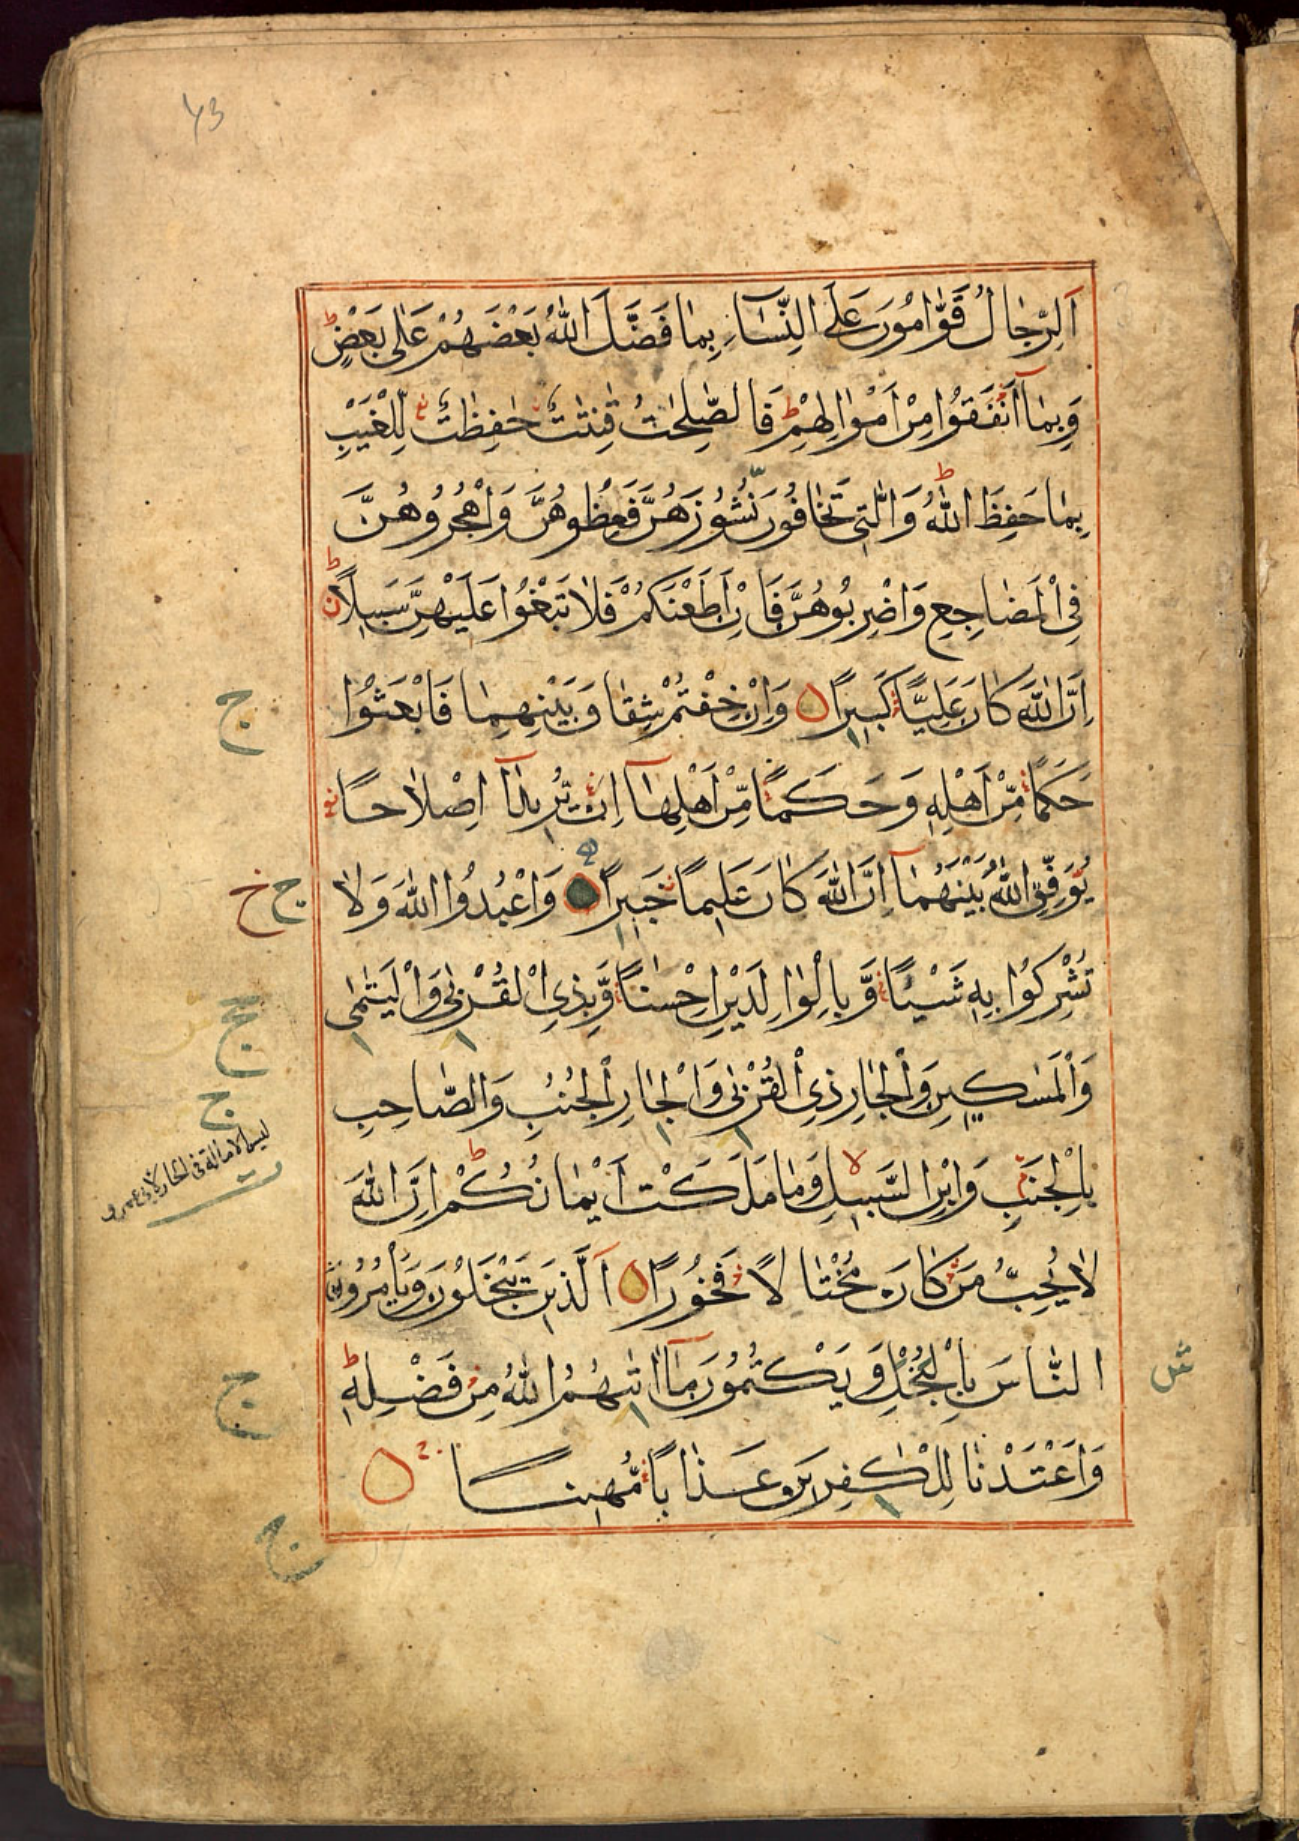 ٧٣
اَلرِّجَالُ قَوّٰامُونَ عَلَى النِّسَآءِ بِمٰا فَضَّلَ اللّٰهُ بَعْضَهُمْ عَلٰى بَعْضٍ ط
وَبِمٰآ اَنْفَقُوْا مِنْ اَمْوٰالِهِمْ ط فَالصّٰلِحٰتُ قٰنِتٰتٌ حٰفِظٰتٌ لِلْغَيْبِ
بِمٰا حَفِظَ اللّٰهُ ط وَالّٰتِي تَخٰافُونَ نُشُوزَهُنَّ فَعِظُوهُنَّ وَاهْجُرُوهُنَّ
فِي الْمَضَاجِعِ وَاضْرِبُوهُنَّ فَاِنْ اَطَعْنَكُمْ فَلٰا تَبْغُوْا عَلَيْهِنَّ سَبِيلًا ط
اِنَّ اللّٰهَ كٰانَ عَلِيًّا كَبِيرًا وَاِنْ خِفْتُمْ شِقٰاقَ بَيْنِهِمٰا فَابْعَثُوْا
ج
حَكَمًا مِنْ اَهْلِهِ وَحَكَمًا مِنْ اَهْلِهٰآ اِنْ يُرِيدٰآ اِصْلٰاحًا
يُوَفِّقِ اللّٰهُ بَيْنَهُمٰا اِنَّ اللّٰهَ كٰانَ عَلِيمًا خَبِيرًا وَاعْبُدُوا اللّٰهَ وَلٰا
ج خ
تُشْرِكُوْا بِهِ شَيْئًا وَّبِالْوٰالِدَيْنِ اِحْسٰنًا وَّبِذِي الْقُرْبٰى وَالْيَتٰمٰى
ج
وَالْمَسٰكِينِ وَالْجٰارِ ذِي الْقُرْبٰى وَالْجٰارِ الْجُنُبِ وَالصّٰاحِبِ
ج
بِالْجَنْبِ وَابْنِ السَّبِيلِ لا وَمٰا مَلَكَتْ اَيْمٰانُكُمْ ط اِنَّ اللّٰهَ
لٰا يُحِبُّ مَنْ كٰانَ مُخْتٰالًا فَخُورًا اَلَّذِينَ يَبْخَلُونَ وَيَأْمُرُونَ
النّٰاسَ بِالْبُخْلِ وَيَكْتُمُونَ مٰآ اٰتٰىهُمُ اللّٰهُ مِنْ فَضْلِهِ ط
ج
وَاَعْتَدْنٰا لِلْكٰفِرِينَ عَذٰابًا مُهِينًا
ج